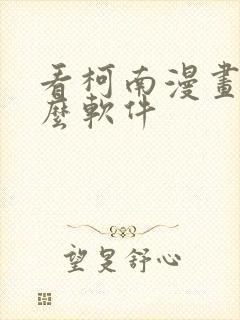 看柯南漫畫
麼軟件
望旻舒心